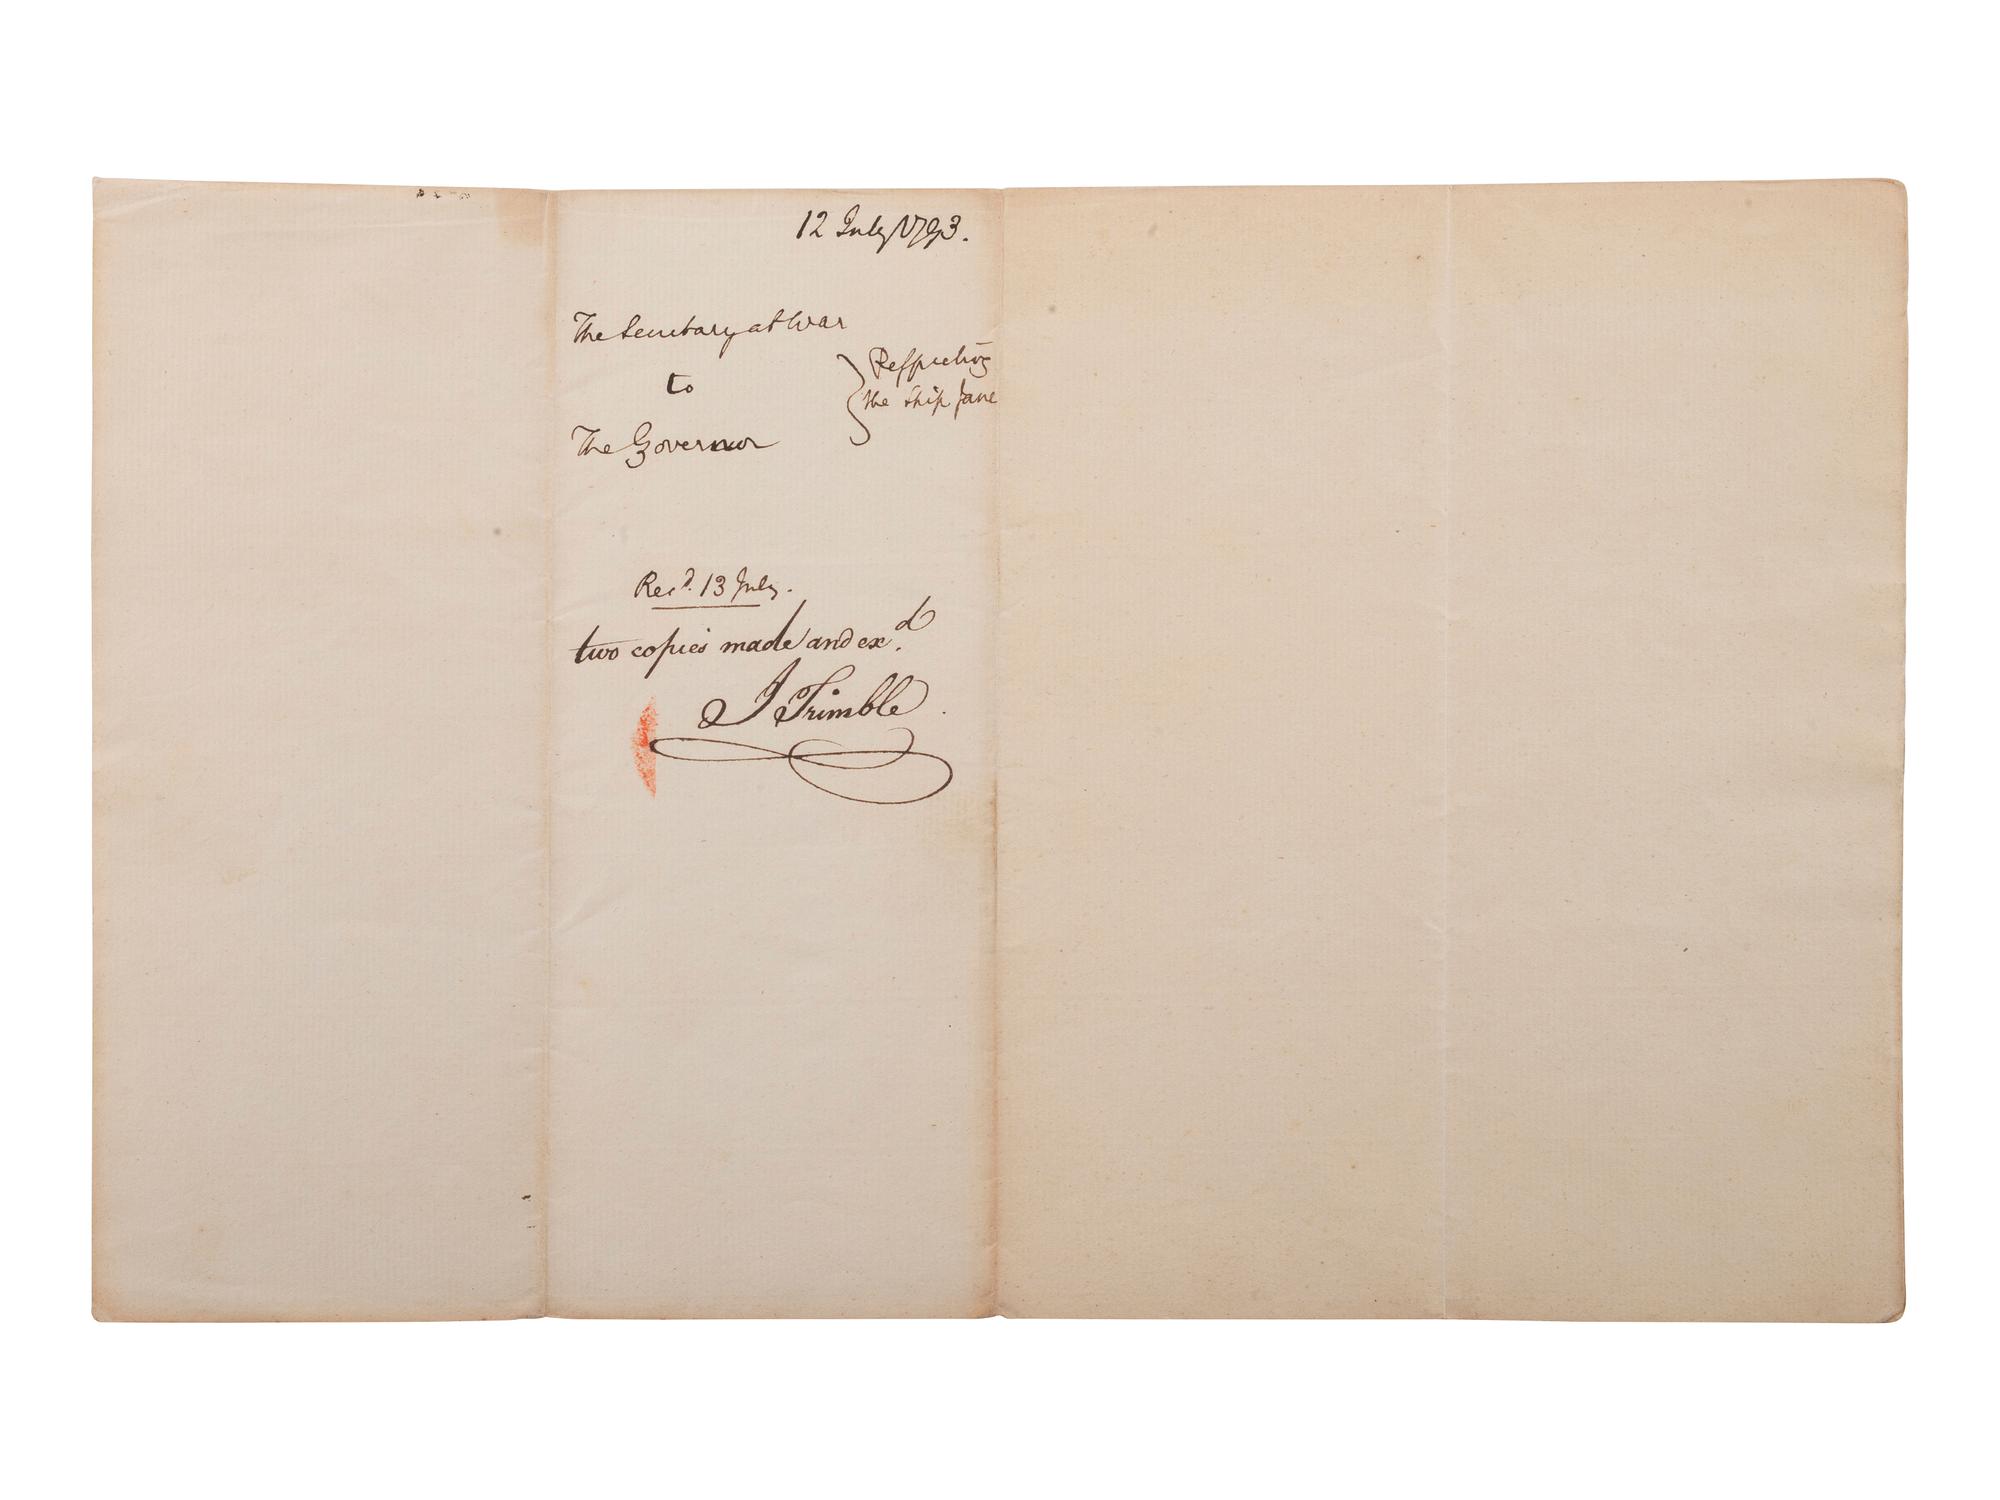 12 July 1793.
The Secretary at War
to
The Governor
Respecting
the Ship Jane
Rec.d 13 July.
two copies made and ex.d
J Trimble.